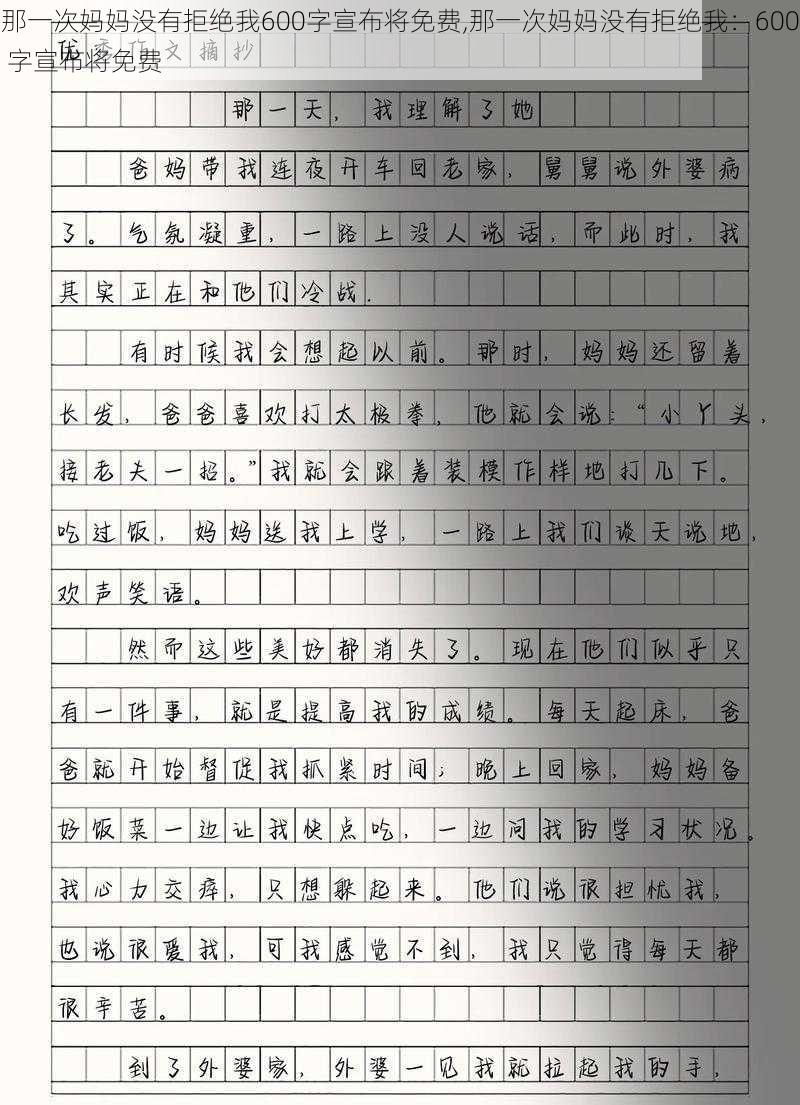 那一次妈妈没有拒绝我600字宣布将免费,那一次妈妈没有拒绝我：600
字宣布将免费
优秀作文摘抄
那一天，我理解了她
爸妈带我连夜开车回老家，舅舅说外婆病
了。气氛凝重，一路上没人说话，而此时，我
其实正在和他们冷战.
有时候我会想起以前。那时，妈妈还留着
长发，爸爸喜欢打太极拳，他就会说：“小丫头，
接老夫一招。”我就会跟着装模作样地打几下。
吃过饭，妈妈送我上学，一路上我们谈天说地，
欢声笑语。
然而这些美好都消失了。现在他们似乎只
有一件事，就是提高我的成绩。每天起床，爸
爸就开始督促我抓紧时间；晚上回家，妈妈备
好饭菜一边让我快点吃，一边问我的学习状况。
我心力交瘁，只想躲起来。他们说很担忧我，
也说很爱我，可我感觉不到，我只觉得每天都
很辛苦。
到了外婆家，外婆一见我就拉起我的手，